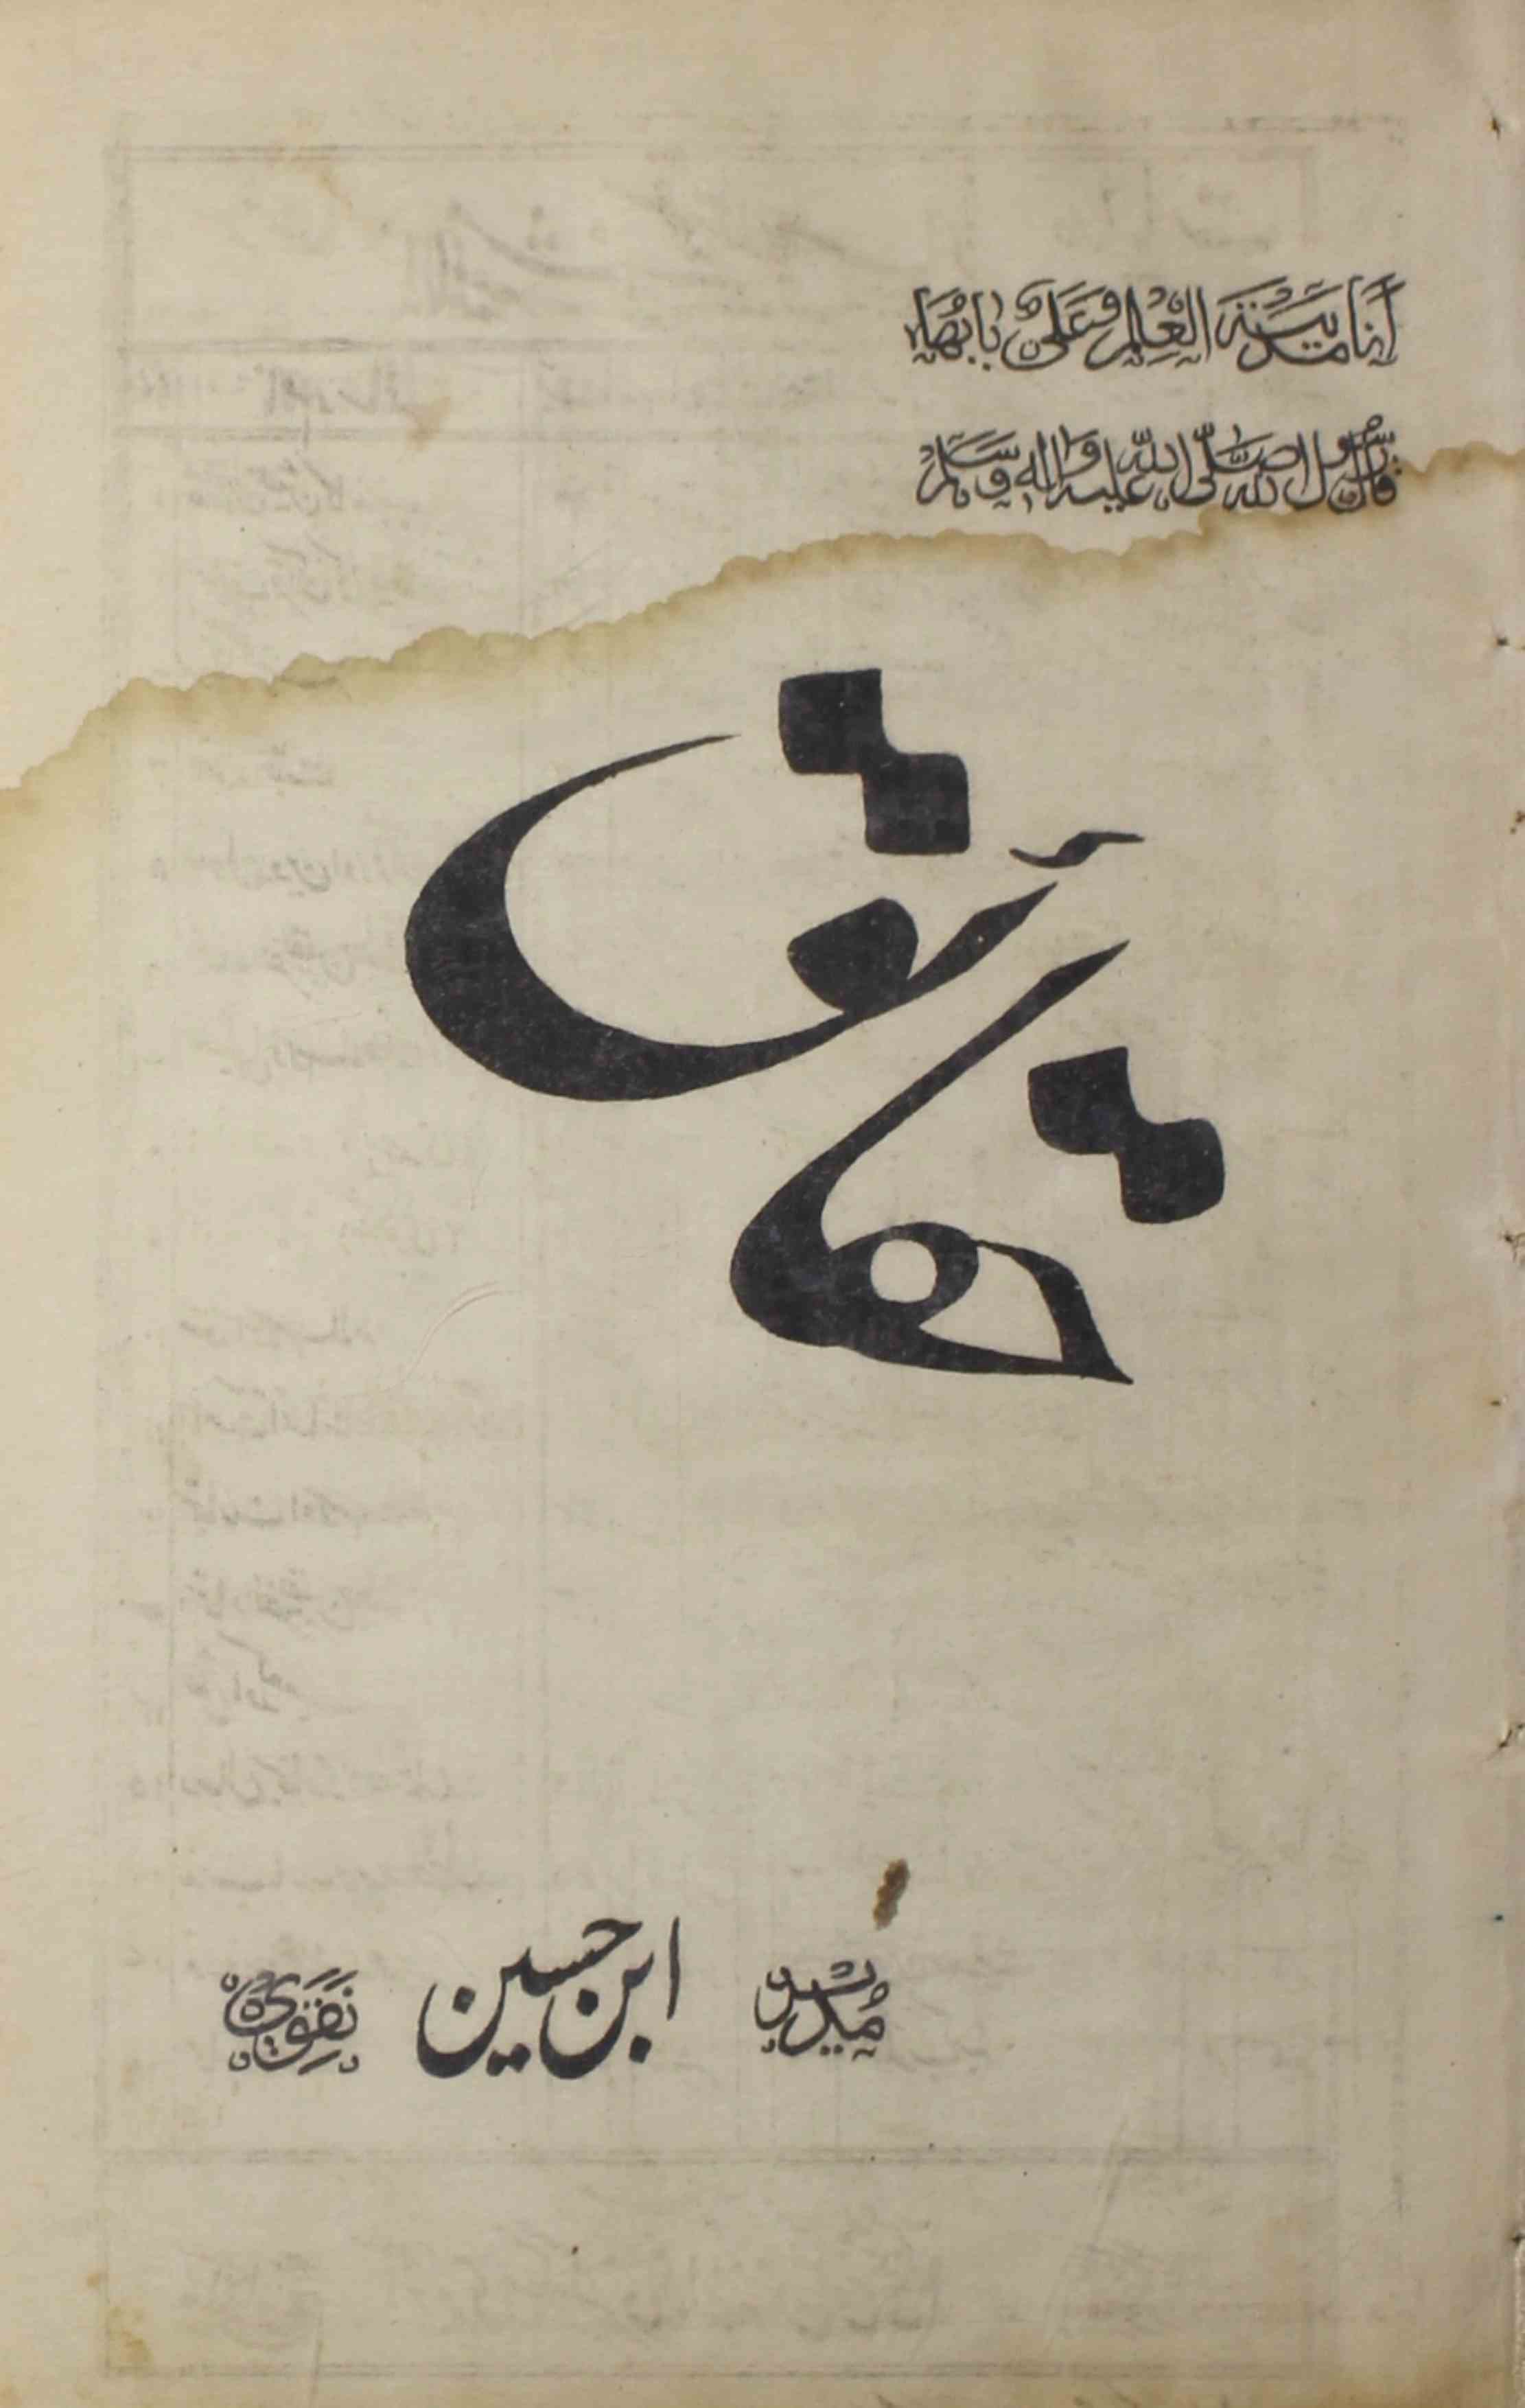 اَنَا مَدِیْنَةُ الْعِلْمِ وَعَلِیٌّ بَابُهَا
قال رسول الله صَلَّى اللهُ عليه وَاٰلهٖ وَسَلَّم
حقائق
مُدیر ابن حسین نَقوی